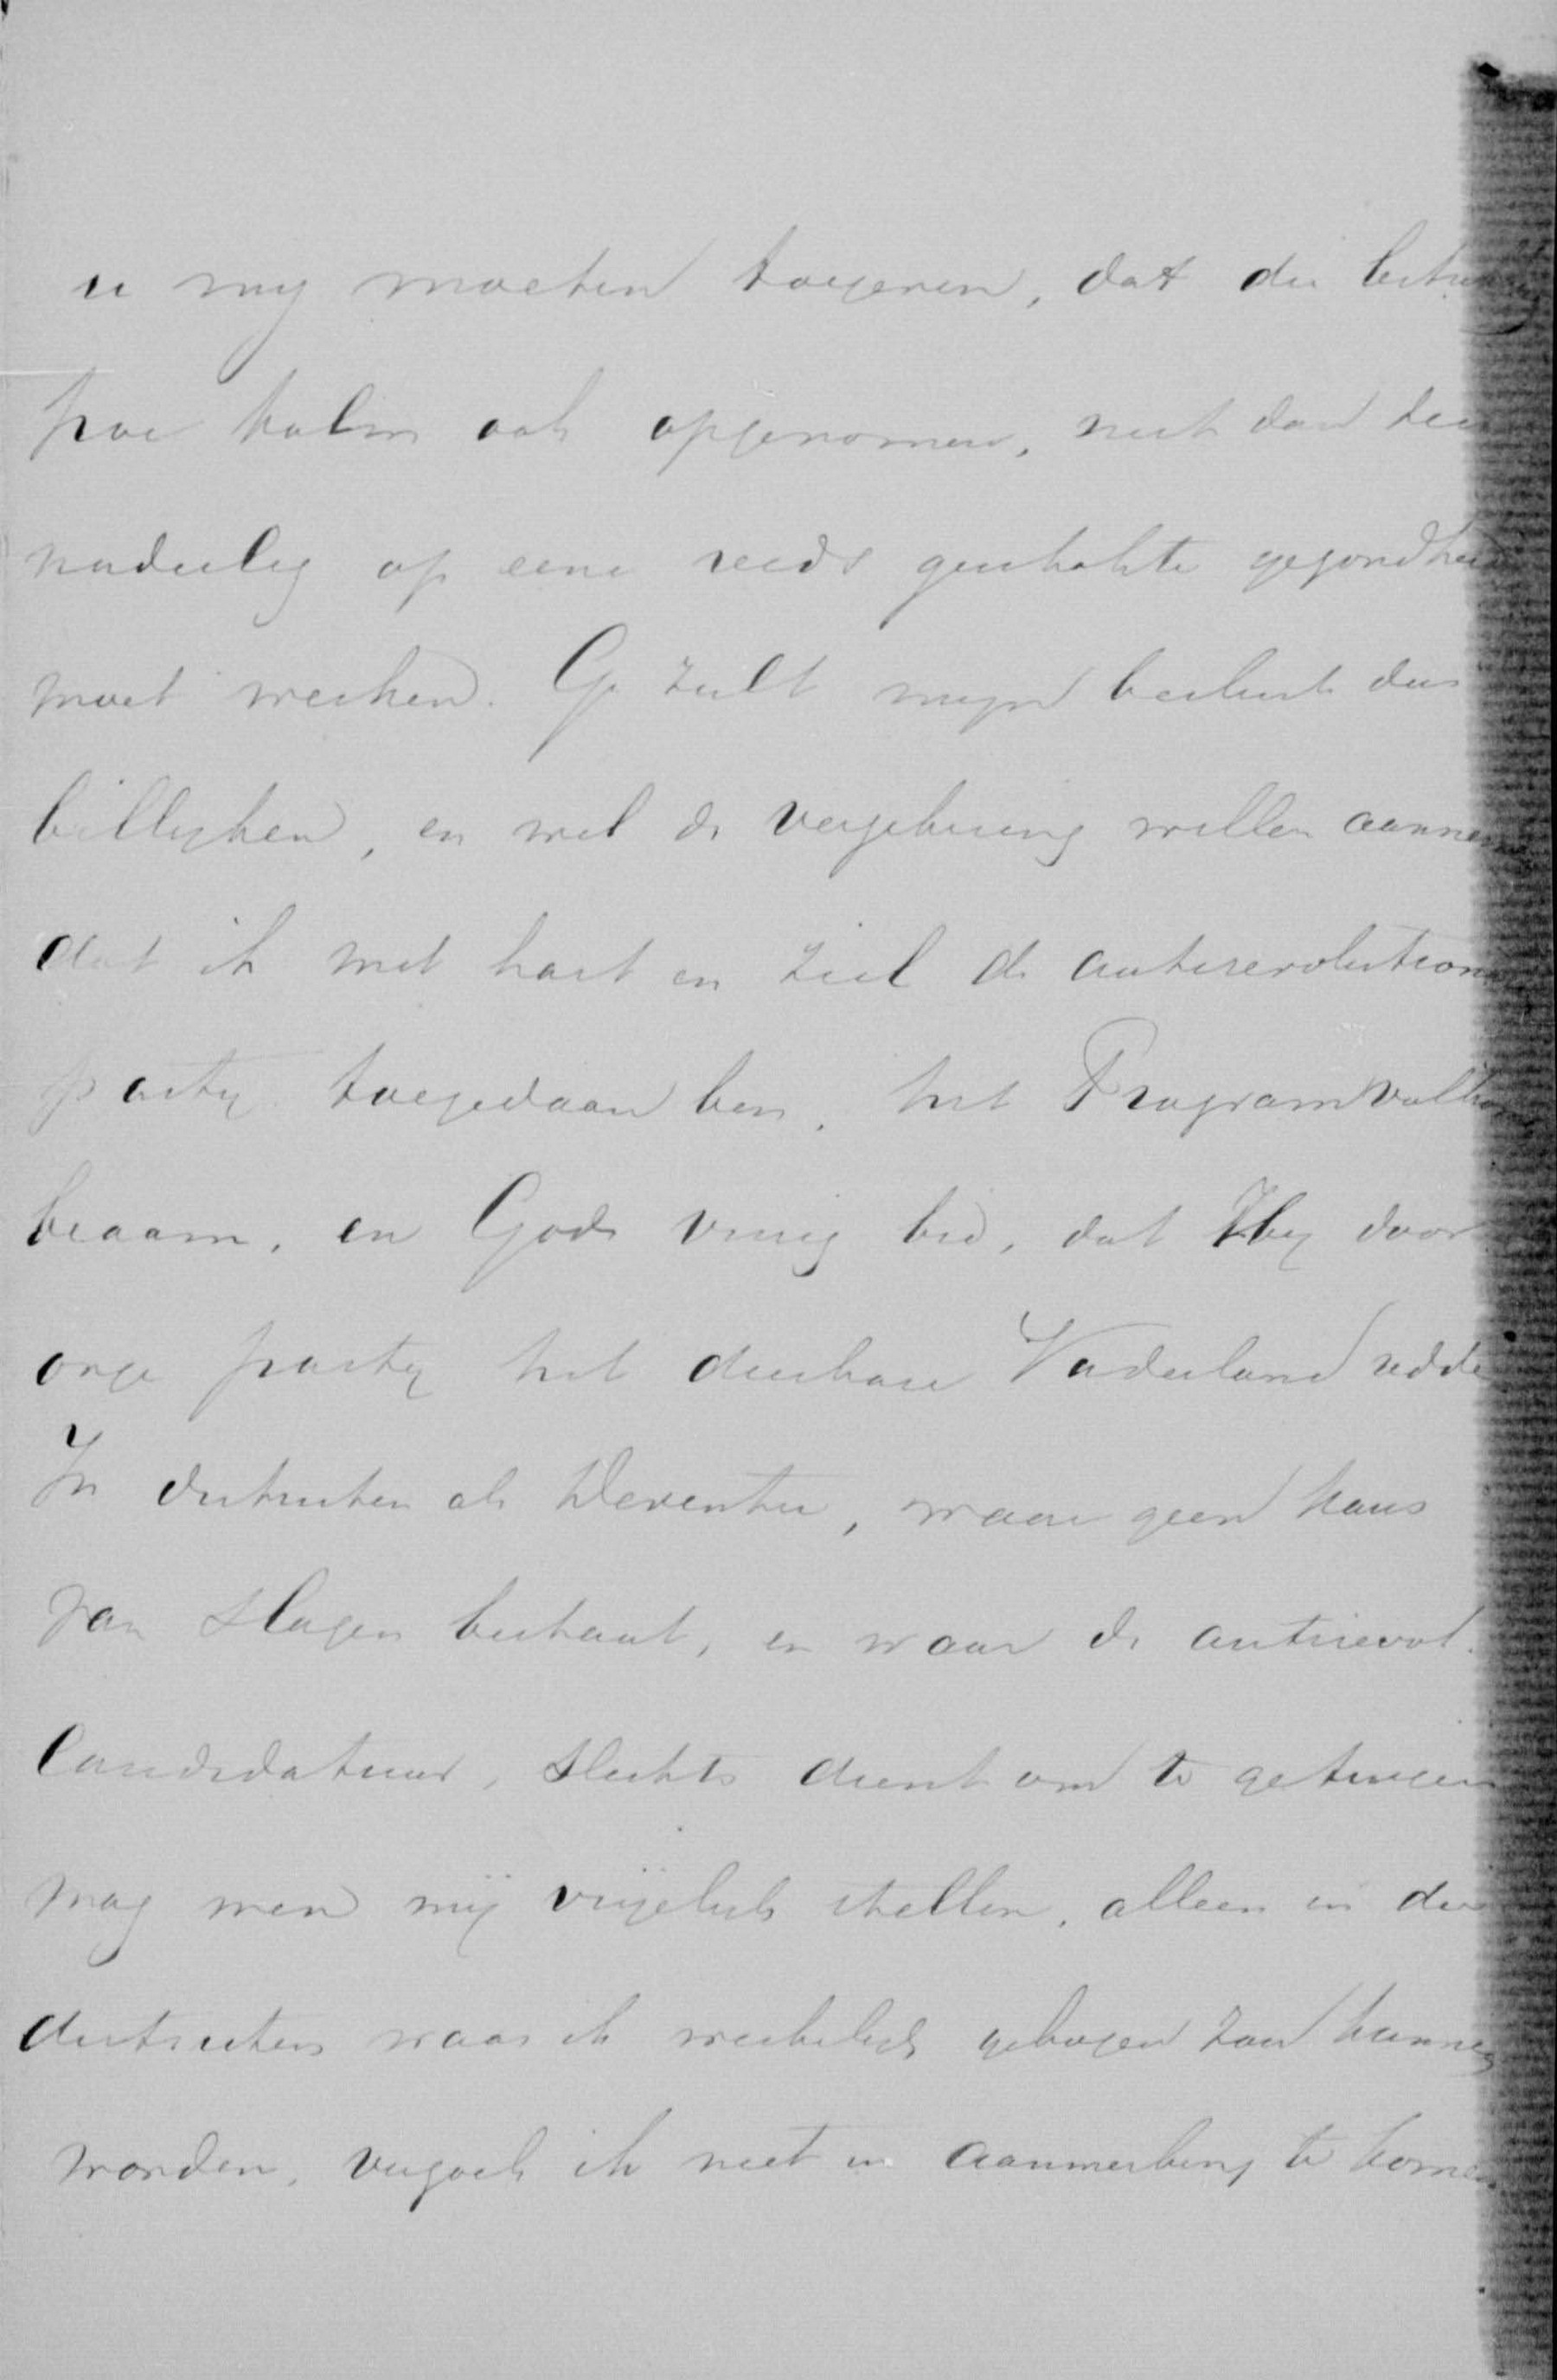 u my moeten toegeven, dat die betrekking
hoe kalm ook opgenomen, niet dan zeer
nadeelig op eene reeds geschokte gezondheid
moet werken. Ge zult mijn besluit dus
billyken, en wel de verzekering willen aannemen
dat ik met hart en ziel de antirevolution
party toegedaan ben, het Program volkomen
beaam, en God vurig bid, dat Hy door
onze party het dierbare Vaderland redde
In districten als Deventer, waar geen kans
van slagen bestaat, en waar de antirevol.
Candidatuur, slechts dient om te getuigen
mag men mij vrijelijk stellen, alleen in die
districten waar ik werkelijk gekozen zou kunnen
worden, verzoek ik niet in aanmerking te komen